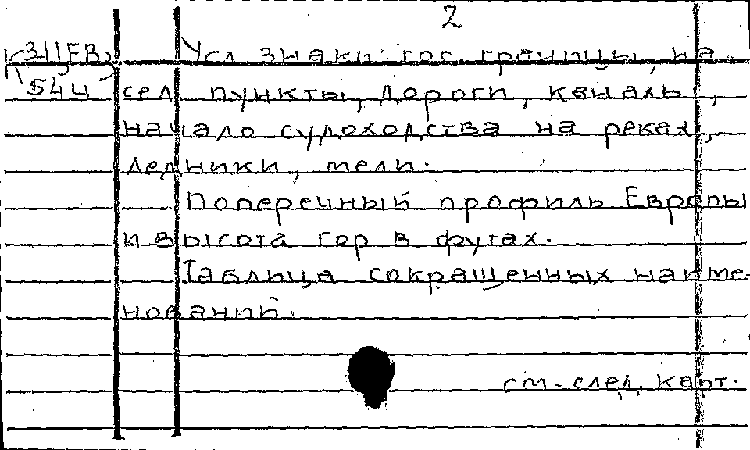 2
К 3-ЦЕВ Усл знаки: гос. границы, на-
544 сел пункты, дороги, каналы,
начало судоходства на реках,
ледники, мели.
Поперечный профиль Европы
и высота гор в футах.
Таблица сокращенных наиме-
нований.
см. след. карт.